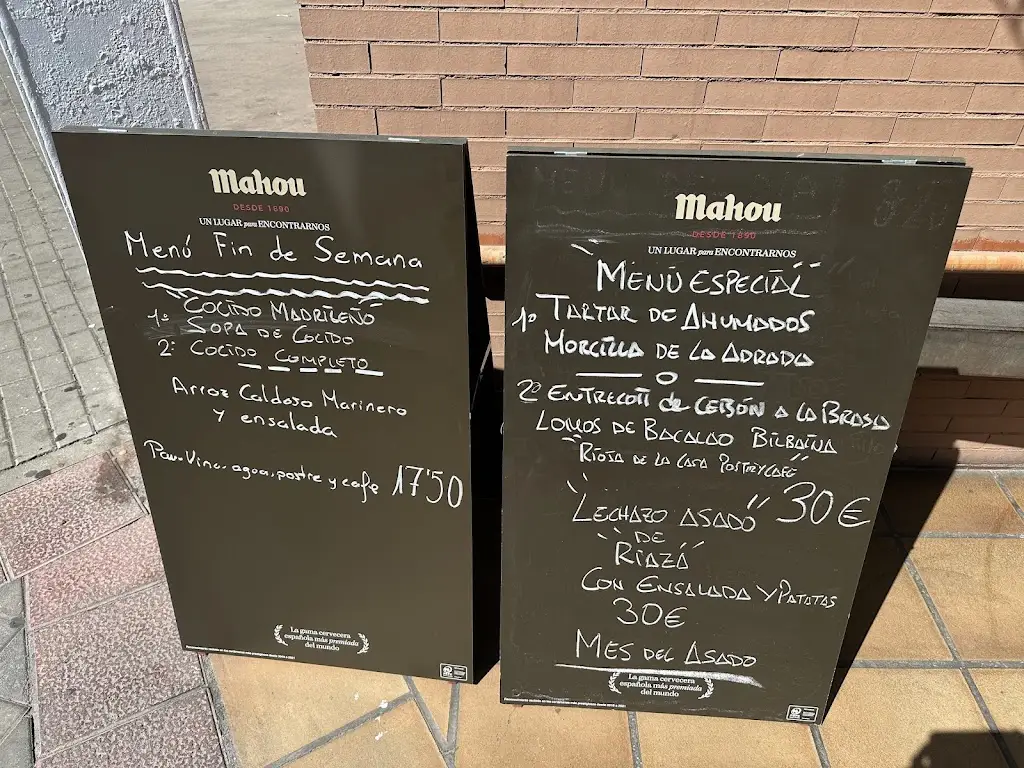 Mahou
DESDE 1890
UN LUGAR para ENCONTRARNOS
Menú Fin de Semana
"COCIDO MADRILEÑO"
1º SOPA DE COCIDO
2º COCIDO COMPLETO
Arroz Caldoso Marinero
y ensalada
Pan, Vino, agua, postre y café 17'50
La gama cervecera
española más premiada
del mundo
Mahou
DESDE 1890
UN LUGAR para ENCONTRARNOS
"MENÚ ESPECIAL"
1º TARTAR DE AHUMADOS
MORCILLA DE LA ADRADA
O
2º ENTRECOTT de CEBÓN A LA BRASA
LOMOS DE BACALAO BILBAÍNA
RIOJA DE LA CASA POSTRE Y CAFÉ
30€
"LECHAZO ASADO"
DE
"RIAZA"
CON ENSALADA Y PATATAS
30€
MES DEL ASADO
La gama cervecera
española más premiada
del mundo